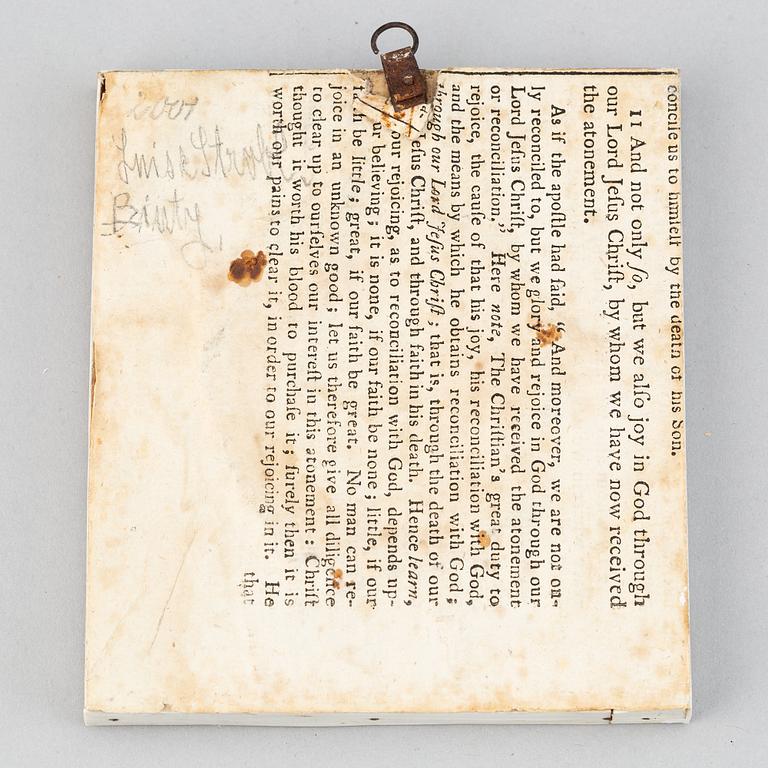 concile us to himself by the death of his Son.
11 And not only ſo, but we alſo joy in God through
our Lord Jeſus Chriſt, by whom we have now received
the atonement.
As if the apoſtle had ſaid, "And moreover, we are not on-
ly reconciled to, but we glory and rejoice in God through our
Lord Jeſus Chriſt, by whom we have received the atonement
or reconciliation." Here note, The Chriſtian's great duty to
rejoice, the cauſe of that his joy, his reconciliation with God,
and the means by which he obtains reconciliation with God;
through our Lord Jeſus Chriſt; that is, through the death of our
Jeſus Chriſt, and through faith in his death. Hence learn,
our rejoicing, as to reconciliation with God, depends up-
our believing; it is none, if our faith be none; little, if our
faith be little; great, if our faith be great. No man can re-
joice in an unknown good; let us therefore give all diligence
to clear up to ourſelves our intereſt in this atonement: Chriſt
thought it worth his blood to purchaſe it; ſurely then it is
worth our pains to clear it, in order to our rejoicing in it. He
that